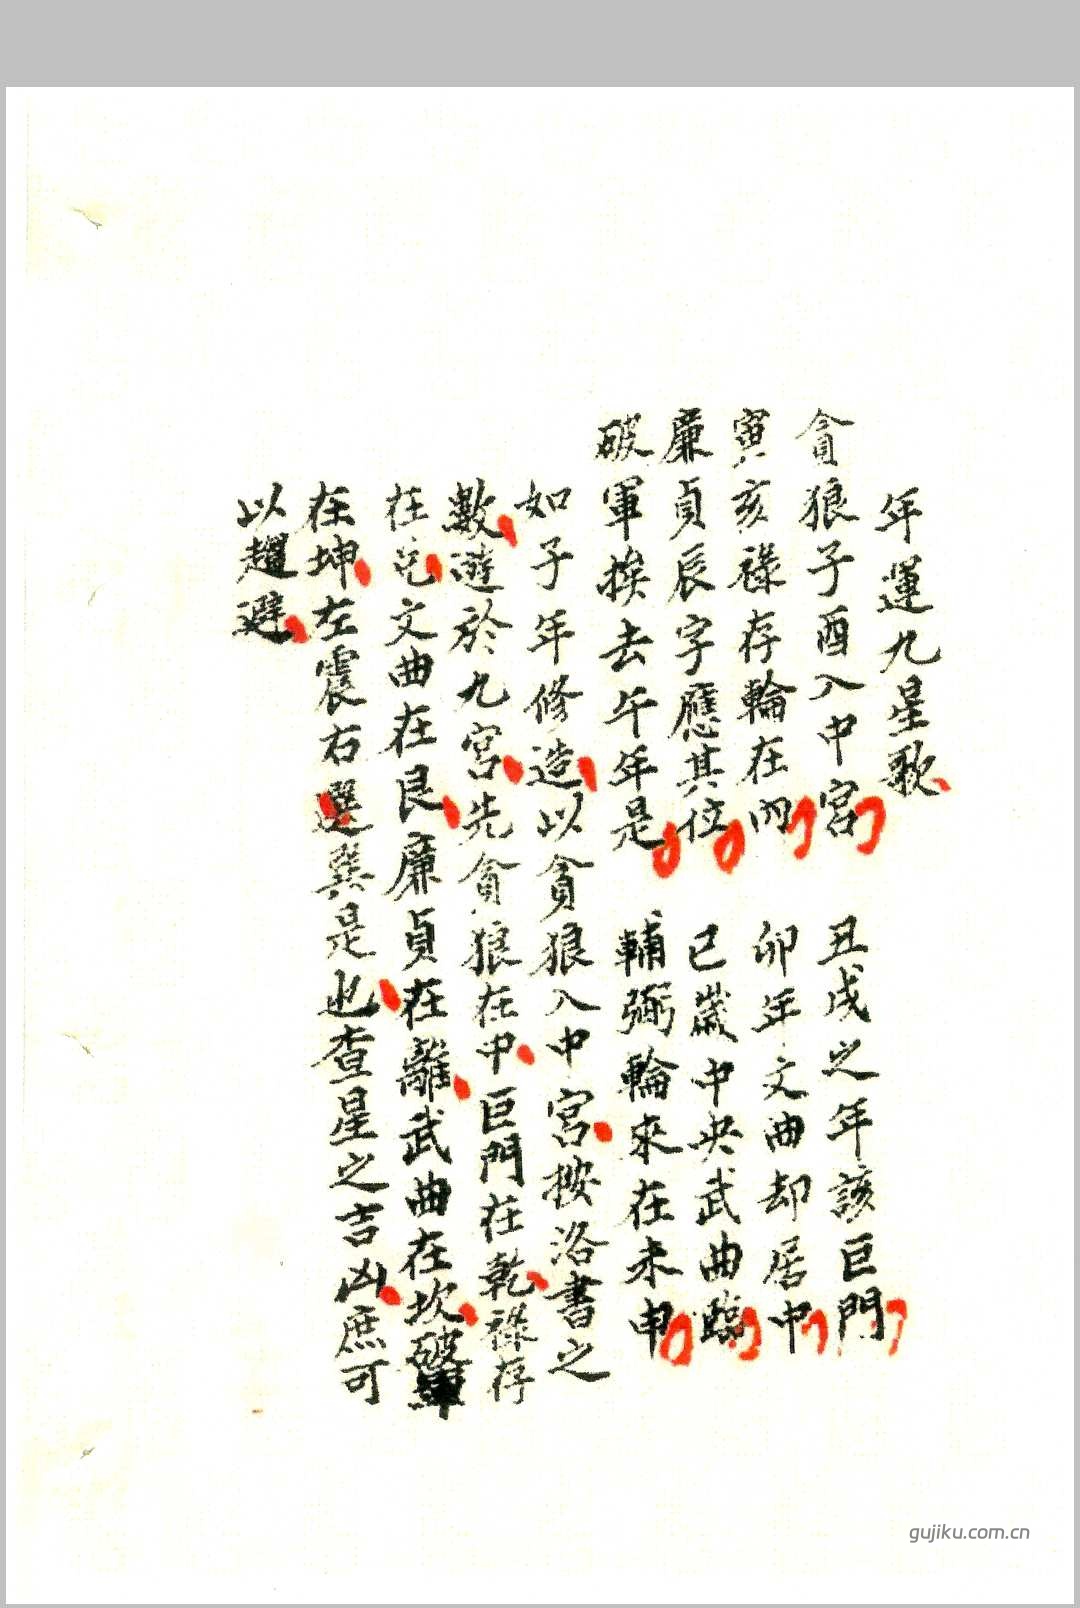 年運九星歌
貪狼子酉入中宮 丑戌之年該巨門
寅亥祿存輪在內 卯年文曲却居中
廉貞辰字應其位 巳歲中央武曲臨
破軍挨去午年是 輔弼輪來在未申
如子年修造以貪狼入中宮按洛書之
數遊於九宮先貪狼在中巨門在乾祿存
在兌文曲在艮廉貞在離武曲在坎破軍
在坤左震右巽是也查星之吉凶庶可
以趨避
gujiku.com.cn